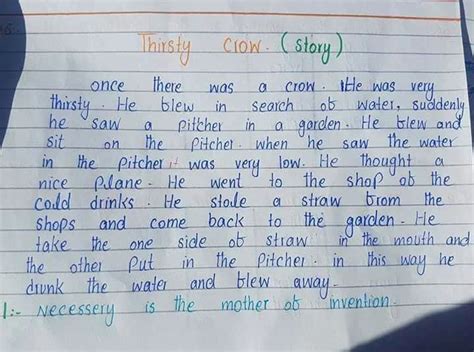 Thirsty Crow. (story)
once there was a crow. He was very
thirsty. He blew in search ob water, suddenly
he saw a pitcher in a garden. He blew and
sit on the pitcher. when he saw the water
in the pitcher it was very low. He thought a
nice plane. He went to the shop ob the
cold drinks. He stole a straw brom the
shops and come back to the garden. He
take the one side ob straw in the mouth and
the other put in the pitcher. in this way he
drunk the water and blew away.
1:- Necessery is the mother ob invention.